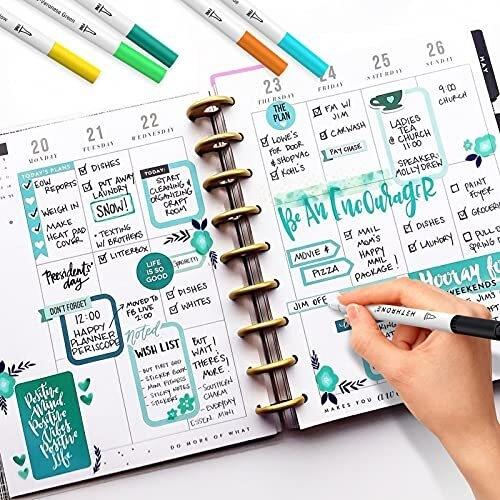 Veronese Green
20
MONDAY
21
TUESDAY
22
WEDNESDAY
TODAY'S PLANS
EOW
REPORTS
WEIGH IN
MAKE
HEAT PAD
COVER
DISHES
PUT AWAY
LAUNDRY
SNOW!
TEXTING
W/ BROTHERS
LITTERBOX
TODAY:
START
CLEANING &
ORGANIZING
CRAFT
ROOM
LIFE IS
SO GOOD
SPAGHETTI
Presidents'
day
DON'T FORGET
12:00
HAPPY
PLANNER
PERISCOPE
MOVED TO
FB LIVE
2:00
DISHES
WHITES
noted
WISH LIST
- BUT FIRST GOD
- STICKER BOOK
- MINI FITNESS
- STICKY NOTES
- STICKERS
BUT,
WAIT!
THERE'S
MORE
- SOUTHERN
CHARM
- EVERYDAY
ESSEN. MINI
Positive
Mind
Positive
Vibes
Positive
Life
DO MORE OF WHAT
23
THURSDAY
24
FRIDAY
25
SATURDAY
26
SUNDAY
MAY
THE
PLAN
LOWE'S
FOR DOOR
& SHOPVAC
KOHL'S
FM W/
JIM
CARWASH
PAY CHASE
LADIES
TEA @
CHURCH
11:00
SPEAKER:
MOLLY DREW
9:00
CHURCH
BE AN ENCOURAGER
MOVIE &
PIZZA
MAIL
MOM'S
HAPPY
MAIL
PACKAGE!
DISHES
LAUNDRY
PAINT
FURST
GROCERY
Hooray for
WEEKENDS
JIM OFF
METRONOME
MAKES YOU